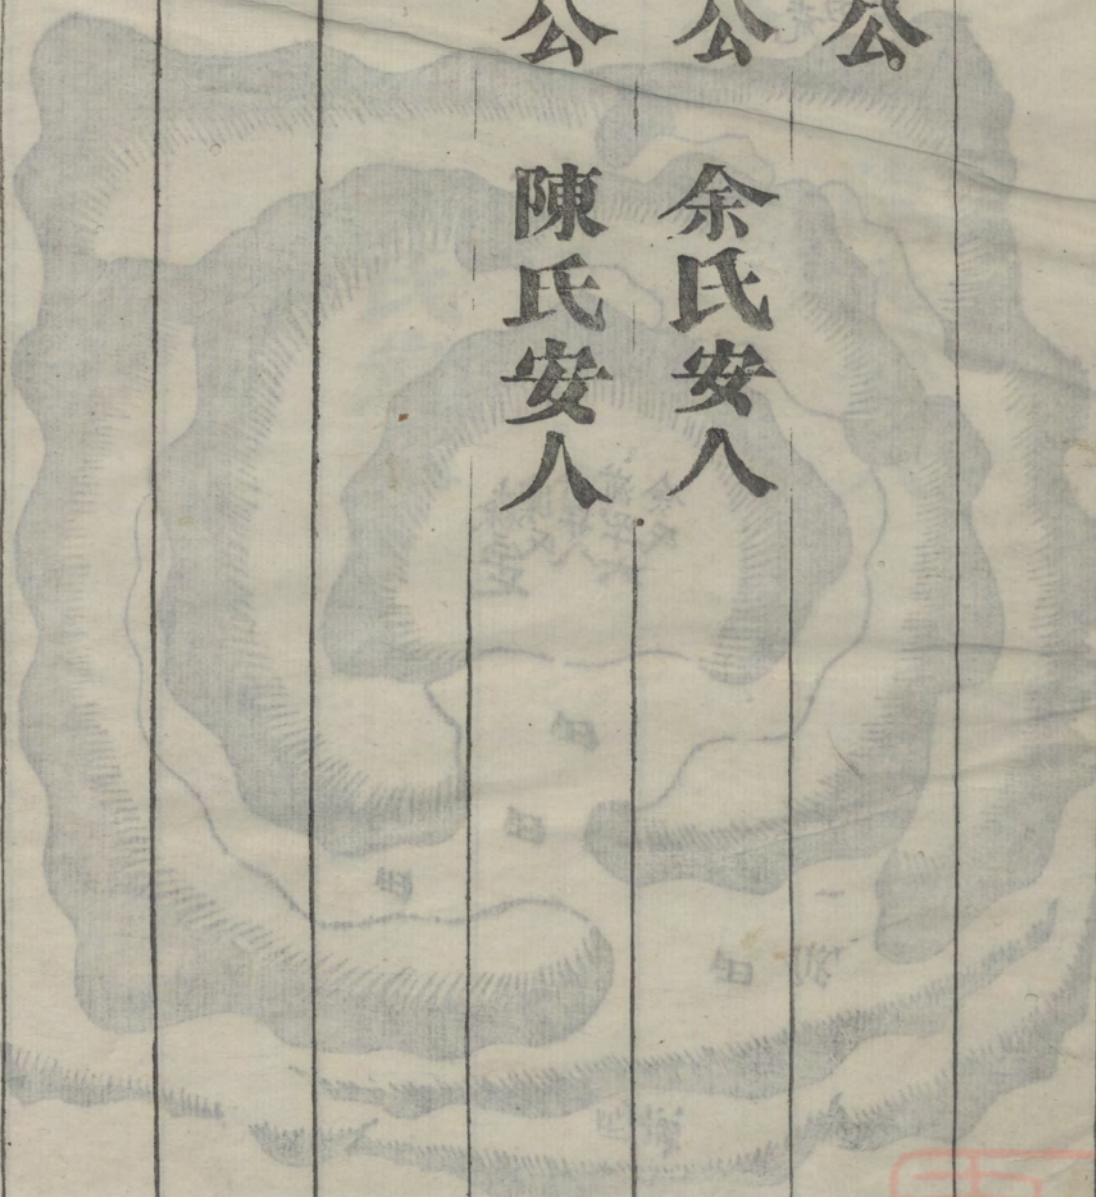 公
公 余氏安人
公 陳氏安人